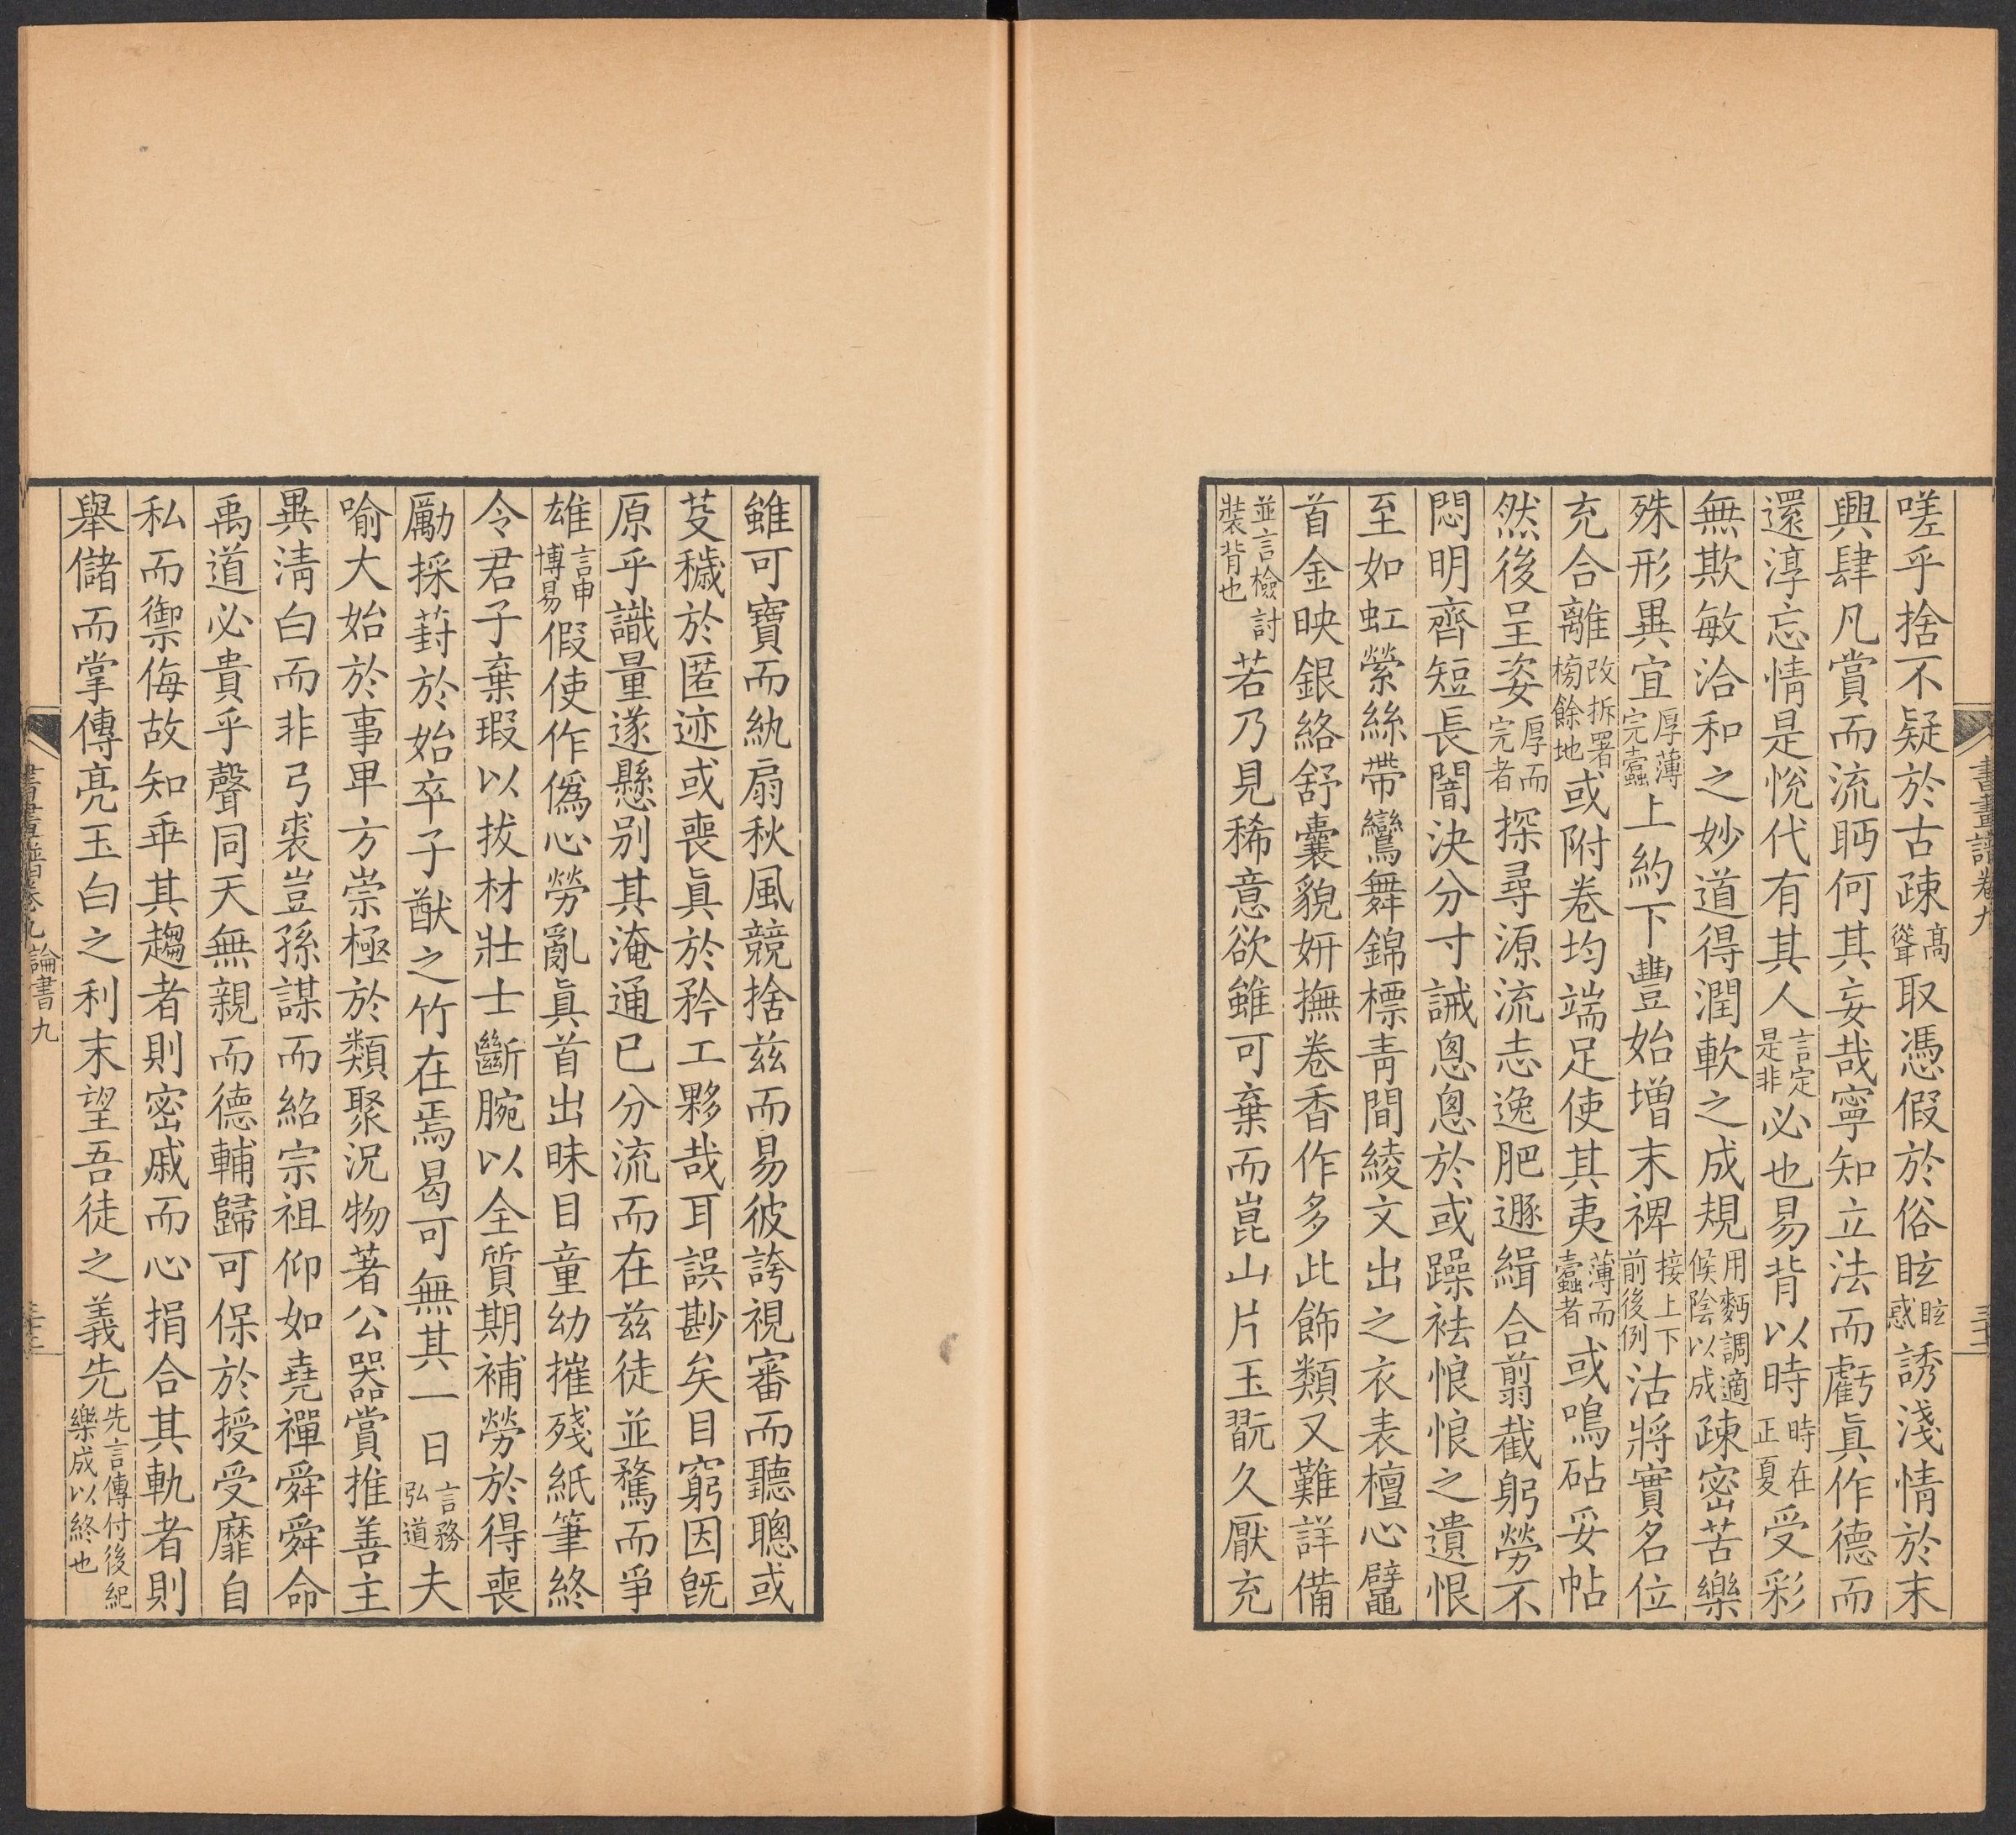 嗟乎捨不疑於古疎高聳取憑假於俗眩眩惑誘淺情於末
興肆凡賞而流眄何其妄哉寧知立法而虧眞作德而
還淳忘情是悅代有其人言定是非必也易背以時時在正夏受彩
無欺敏洽和之妙道得潤軟之成規用麪調適候陰以成疎密苦樂
殊形異宜厚薄完蠹上約下豐始增末裨接上下前後例沽將實名位
充合離改拆署榜餘地或附卷均端足使其夷薄而蠹者或鳴砧妥帖
然後呈姿厚而完者探尋源流志逸肥遯緝合翦截躬勞不
悶明齊短長闇決分寸誡悤悤於或躁袪悢悢之遺恨
至如虹縈絲帶鸞舞錦標靑間綾文出之衣表檀心躄
首金映銀絡舒囊貌姸撫卷香作多此飾類又難詳備
並言檢討裝背也若乃見稀意欲雖可棄而崑山片玉翫久厭充
書畫譜卷九
雖可寶而紈扇秋風競捨兹而易彼誇視審而聽聰或
芟穢於匿迹或喪眞於矜工夥哉耳誤尠矣目窮因旣
原乎識量遂懸别其淹通已分流而在兹徒並騖而爭
雄言申博易假使作僞心勞亂眞首出昧目童幼摧殘紙筆終
令君子棄瑕以拔材壯士斷腕以全質期補勞於得喪
勵採葑於始卒子猷之竹在焉曷可無其一日言務弘道夫
喻大始於事畢方崇極於類聚況物著公器賞推善主
異淸白而非弓裘豈孫謀而紹宗祖仰如堯禪舜舜命
禹道必貴乎聲同天無親而德輔歸可保於授受靡自
私而禦侮故知乖其趨者則密戚而心捐合其軌者則
舉儲而掌傳亮玉白之利末望吾徒之義先先言傳付後紀樂成以終也
書畫譜卷九 論書九